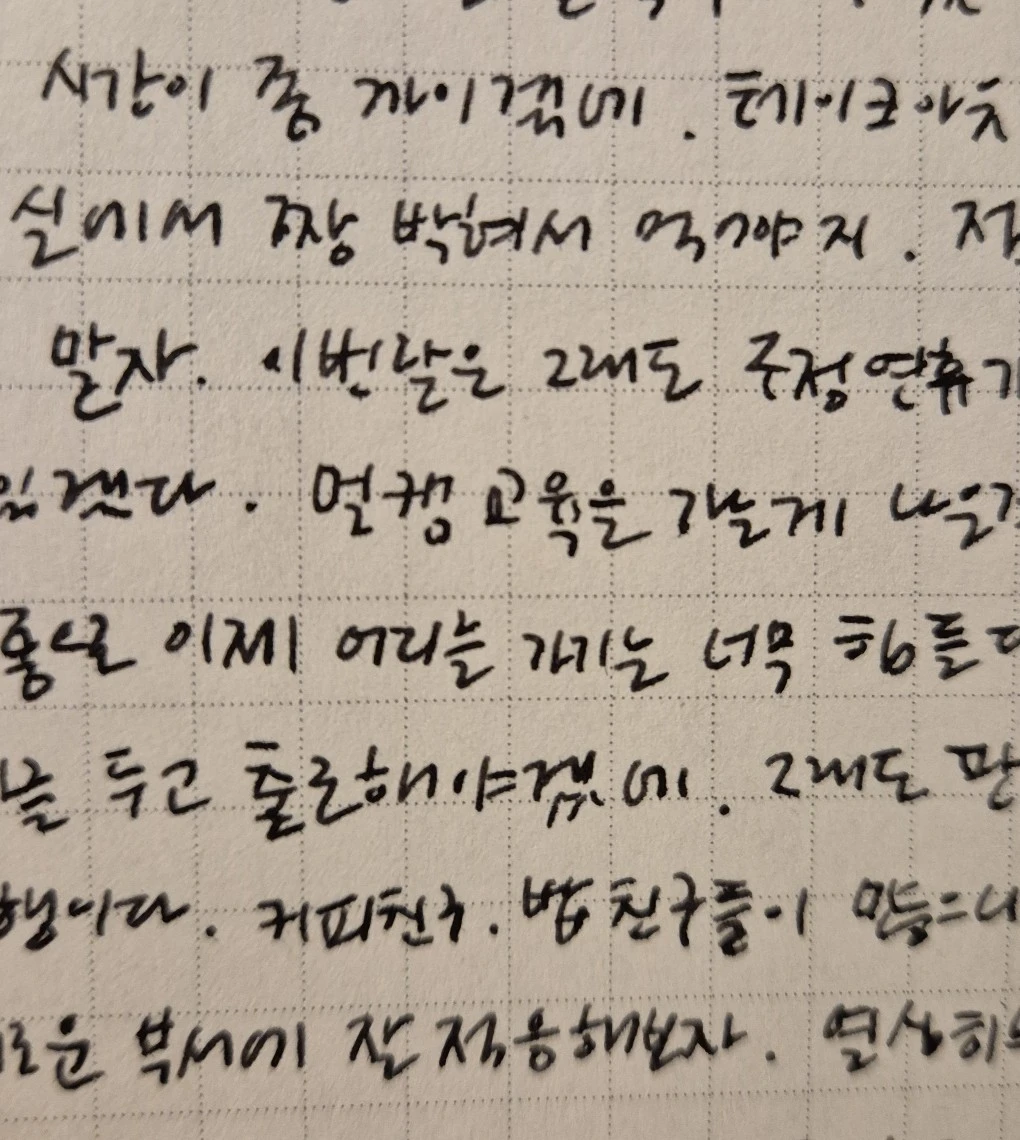 시간이 좀 까이겠네. 테이크아웃
실에서 짱 박혀서 먹어야지.
말자. 이번달은 그래도 주정연휴가
있겠다. 멀캠 교육을 가는게 나은
이제 어리는 가기는 너무 힘들다
두고 출근해야겠네. 그래도
행이다. 커피친구. 밥친구들이 만드니
로운 부서에 잘 적응해보자. 열심히